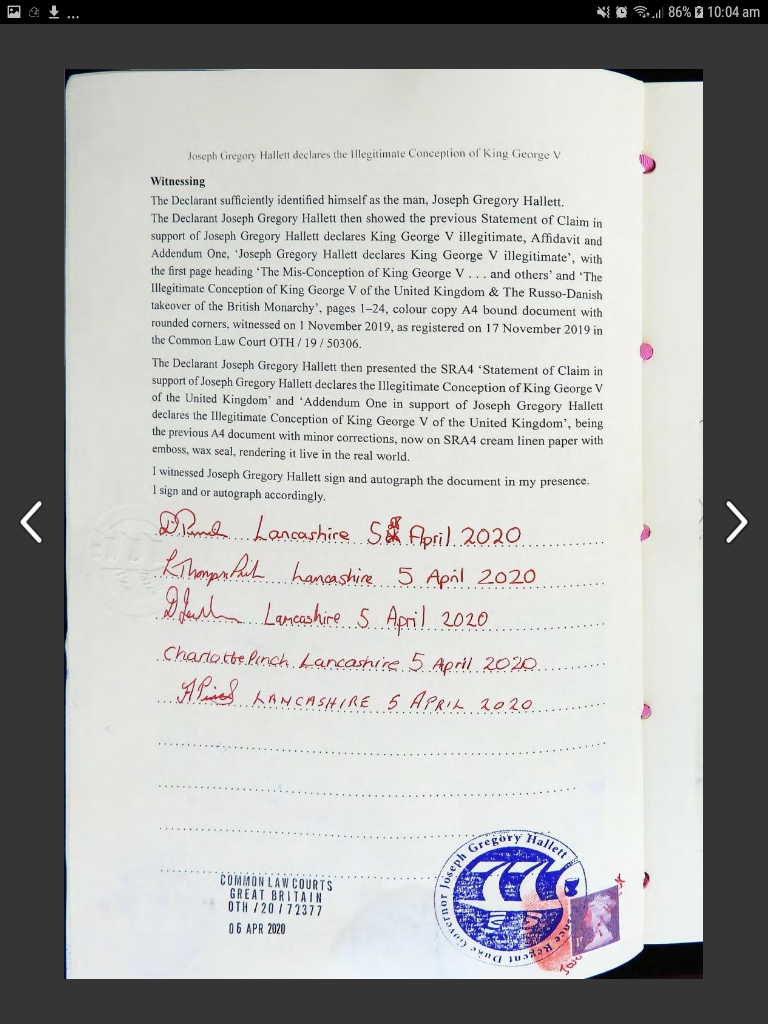 86% 10:04 am
Joseph Gregory Hallett declares the Illegitimate Conception of King George V
Witnessing
The Declarant sufficiently identified himself as the man, Joseph Gregory Hallett.
The Declarant Joseph Gregory Hallett then showed the previous Statement of Claim in
support of Joseph Gregory Hallett declares King George V illegitimate, Affidavit and
Addendum One, ‘Joseph Gregory Hallett declares King George V illegitimate’, with
the first page heading ‘The Mis-Conception of King George V . . . and others’ and ‘The
Illegitimate Conception of King George V of the United Kingdom & The Russo-Danish
takeover of the British Monarchy’, pages 1–24, colour copy A4 bound document with
rounded corners, witnessed on 1 November 2019, as registered on 17 November 2019 in
the Common Law Court OTH / 19 / 50306.
The Declarant Joseph Gregory Hallett then presented the SRA4 ‘Statement of Claim in
support of Joseph Gregory Hallett declares the Illegitimate Conception of King George V
of the United Kingdom’ and ‘Addendum One in support of Joseph Gregory Hallett
declares the Illegitimate Conception of King George V of the United Kingdom’, being
the previous A4 document with minor corrections, now on SRA4 cream linen paper with
emboss, wax seal, rendering it live in the real world.
I witnessed Joseph Gregory Hallett sign and autograph the document in my presence.
I sign and or autograph accordingly.
Lancashire 5 April 2020
Lancashire 5 April 2020
Lancashire 5 April 2020
Charlotte Pinch Lancashire 5 April 2020
LANCASHIRE 5 APRIL 2020
COMMON LAW COURTS
GREAT BRITAIN
OTH / 20 / 72377
06 APR 2020
Governor Joseph Gregory Hallett
Regent Duke